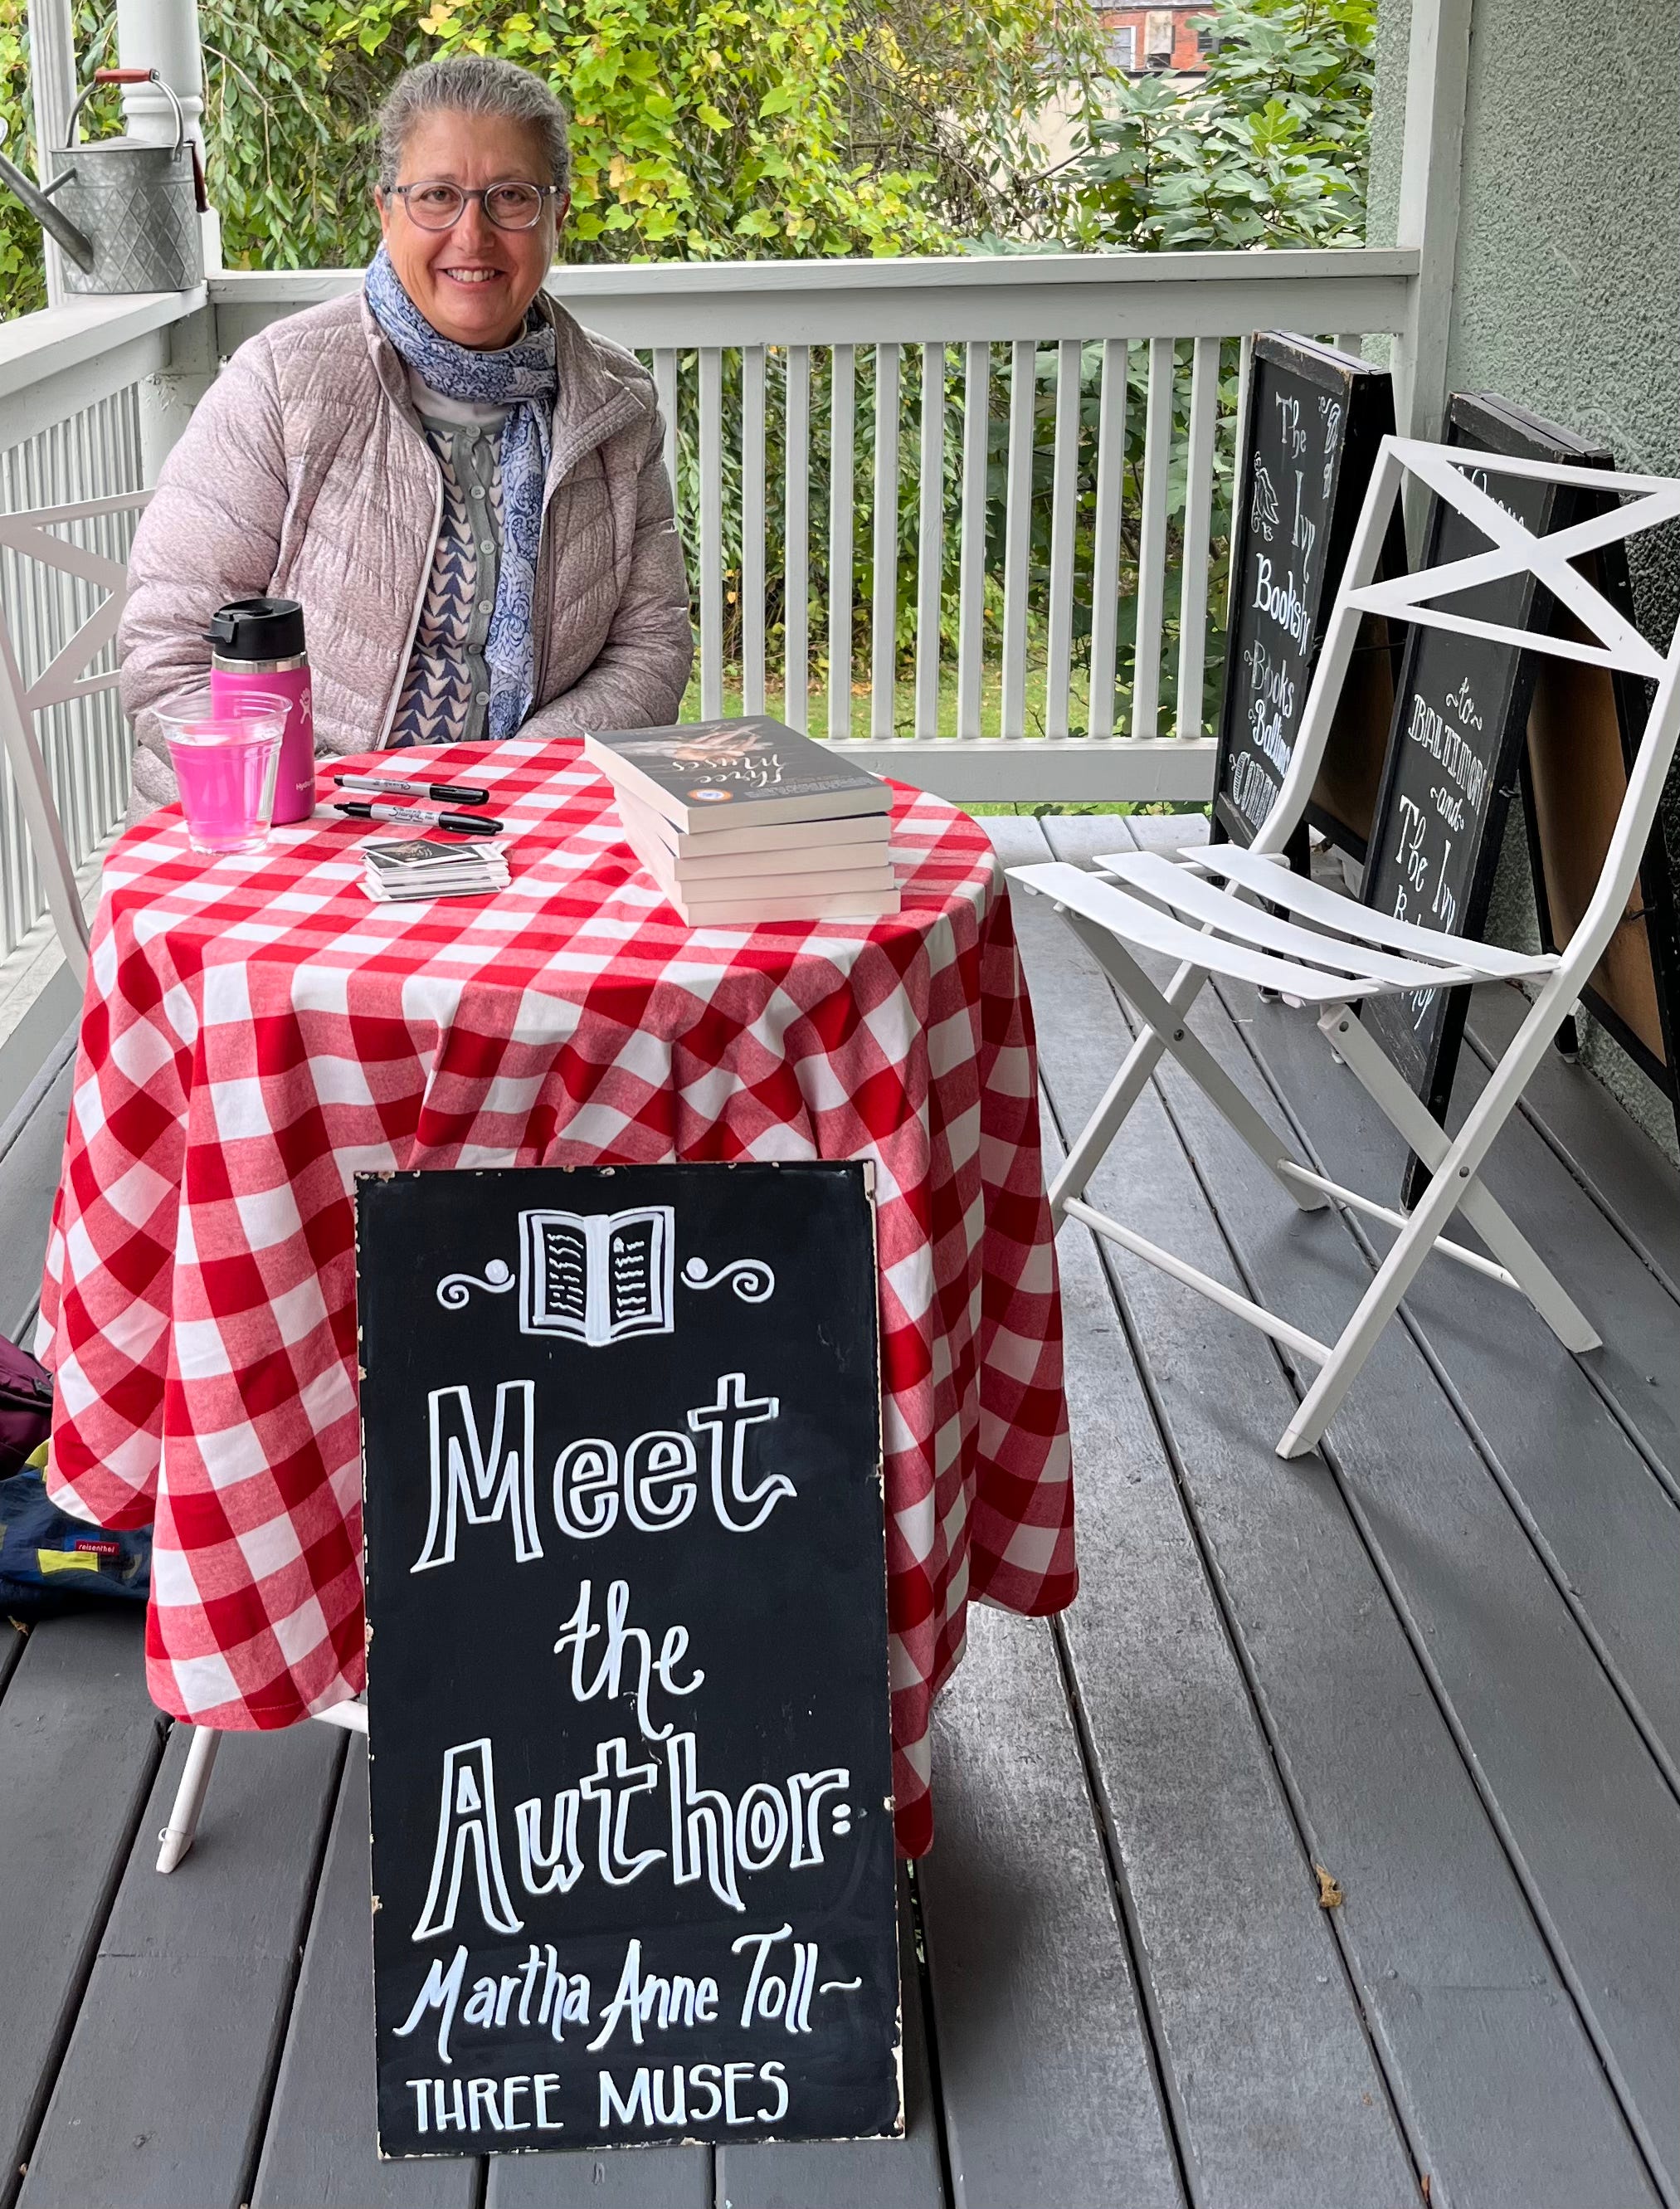 Three
Muses
Sharpie
The
Ivy
Books
to
BALTIMORE
and
The Ivy
reisenthel
Meet
the
Author:
Martha Anne Toll~
THREE MUSES